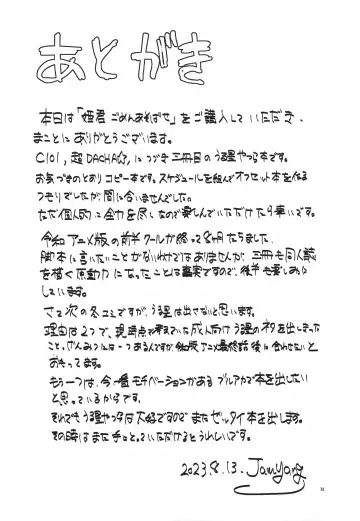 あとがき
本日は「姫君ごめんあそばせ」をご購入していただき、
まことにありがとうございます。
C101,超DACHA☆,につづき三冊目のうる星やつら本です。
お気づきのとおりコピー本です。スケジュールを組んでオフセット本を作る
つもりでしたが間に合いませんでした。
ただ個人的に全力を尽くしたので楽しんでいただけたら幸いです。
令和アニメ版の前半クールが終って8ヶ月たちました、
脚本に言いたいことがないわけではありませんが、三冊も同人誌
を描く原動力になったことは事実ですので、後半も楽しみに
しています。
さて次の冬コミですが、うる星は出せないと思います。
理由は2つで、現時点で考えていた成人向けうる星のネタを出しきった
こと。げんみつには一つあるんですが、令和版アニメ最終話後に合わせたいと
おもってます。
もう一つは、今一番モチベーションがあるブルアカで本を出したい
と思っているからです。
それでもうる星やつらは大好きですのでまたゼッタイ本を出します。
その時はまた手にとっていただけるとうれしいです。
2023.8.13. JamYang